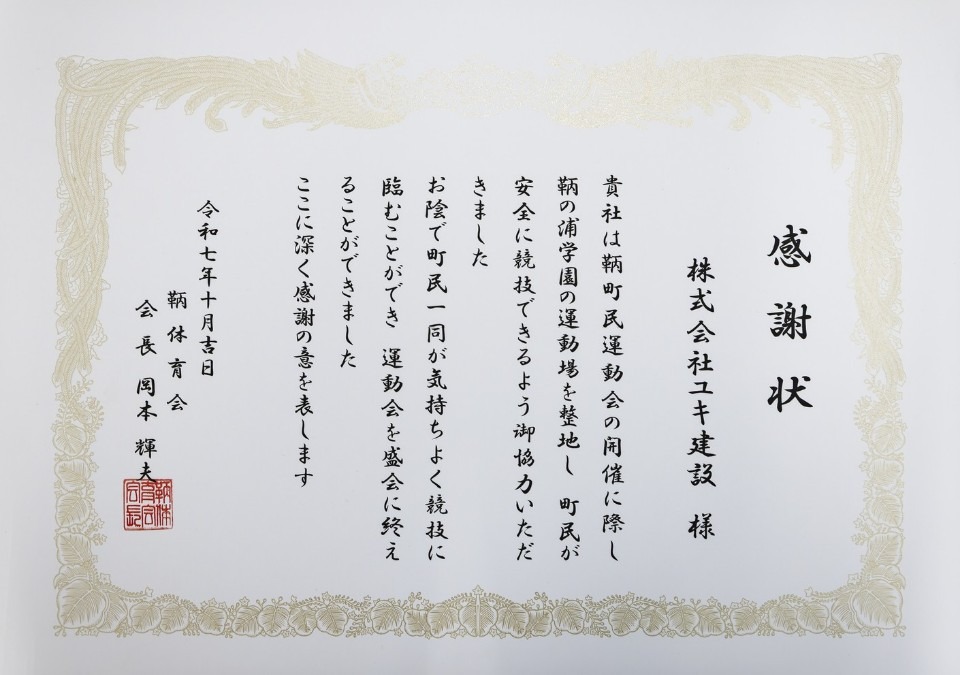 感謝状
株式会社ユキ建設 様
貴社は鞆町民運動会の開催に際し
鞆の浦学園の運動場を整地し 町民が
安全に競技できるよう御協力いただ
きました
お陰で町民一同が気持ちよく競技に
臨むことができ 運動会を盛会に終え
ることができました
ここに深く感謝の意を表します
令和七年十月吉日
鞆体育会
会長 岡本 輝夫
鞆体育会会長